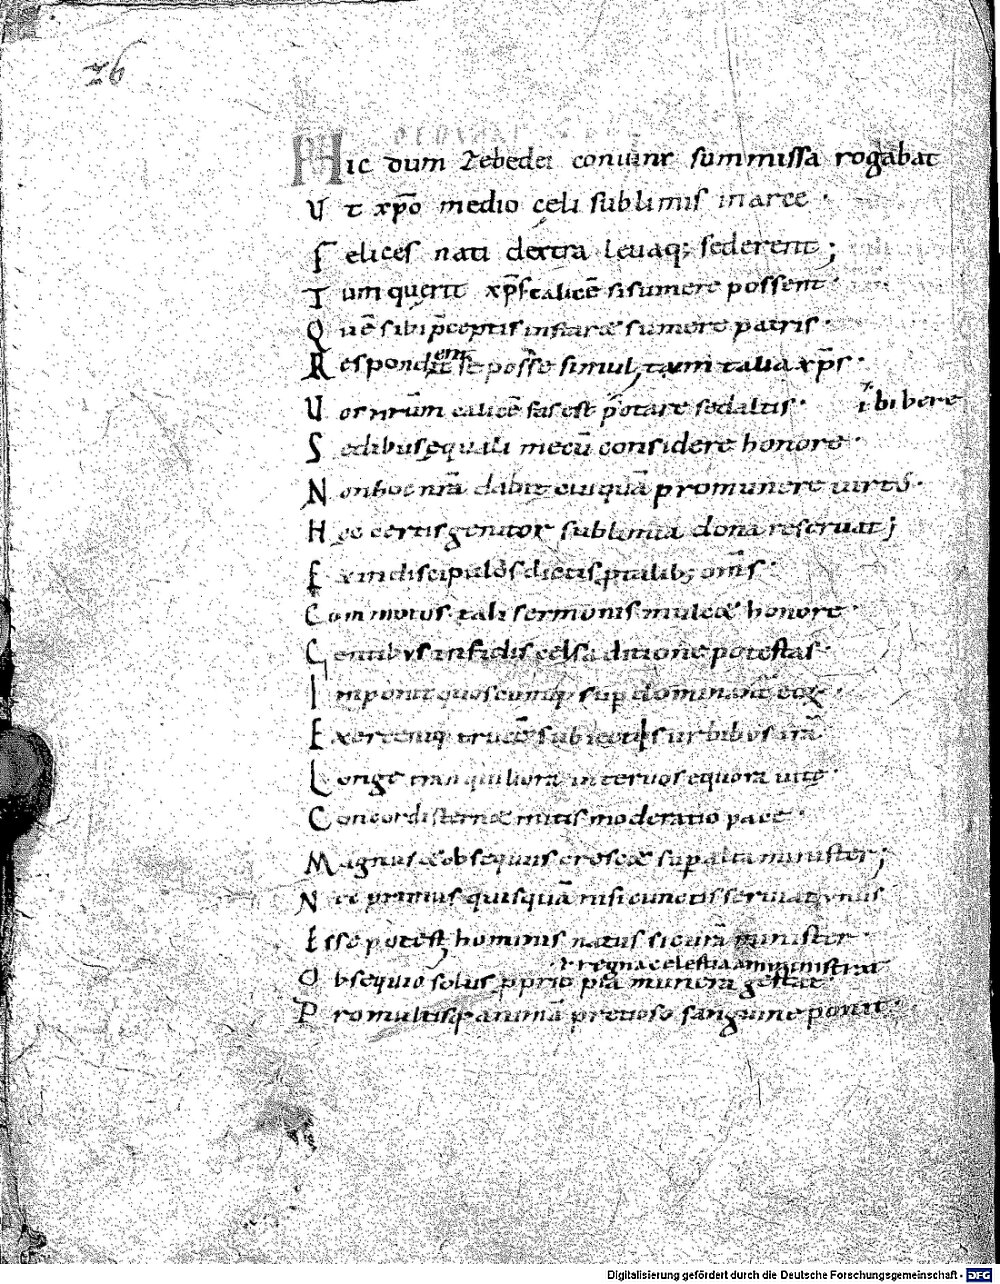 26
Hic dum Zebedei coniunx summissa rogabat
Ut xp̄o medio cęli sublimis in arce ·
Felices nati dextra leuaq; sederent;
Tum querit xp̄s calicē si sumere possent ·
Quē sibi p̄ceptis instaræ sumere patris ·
Respondit se posse simul, tum talia xp̄s ·
ent
Uor nr̄um calicē fas est potare sed altis · ł bibere
Sedibus ęquali mecū considere honore ·
Non hoc nr̄a dabit cuiquā pro munere uirtus ·
Hęc certis genitor sublimia dona reseruat;
Ex in discipulos dictis p̄talib; om̄s ·
Commotus tali sermonis mulcæ honore ·
Gentibus infidis celsa ditione potestas ·
Inponit quoscumq; sup dominant̄
Exercentq; trucē subiectis urbibus irā
Longe tranquiliora inter uos equora uitę ·
Concordi sternæ mitis moderatio pace ·
Magnus æ obsequiis crescæ sup alta minister;
Ne primus quisquā nisi cunctis seruiat unus
Esse potest, hominis natus sic minister ·
ł regna celestia amministrat
Obsequio solus pprio p munera gestat ·
Pro multisq; animā pretioso sanguine ponit ·
Digitalisierung gefördert durch die Deutsche Forschungsgemeinschaft - DFG